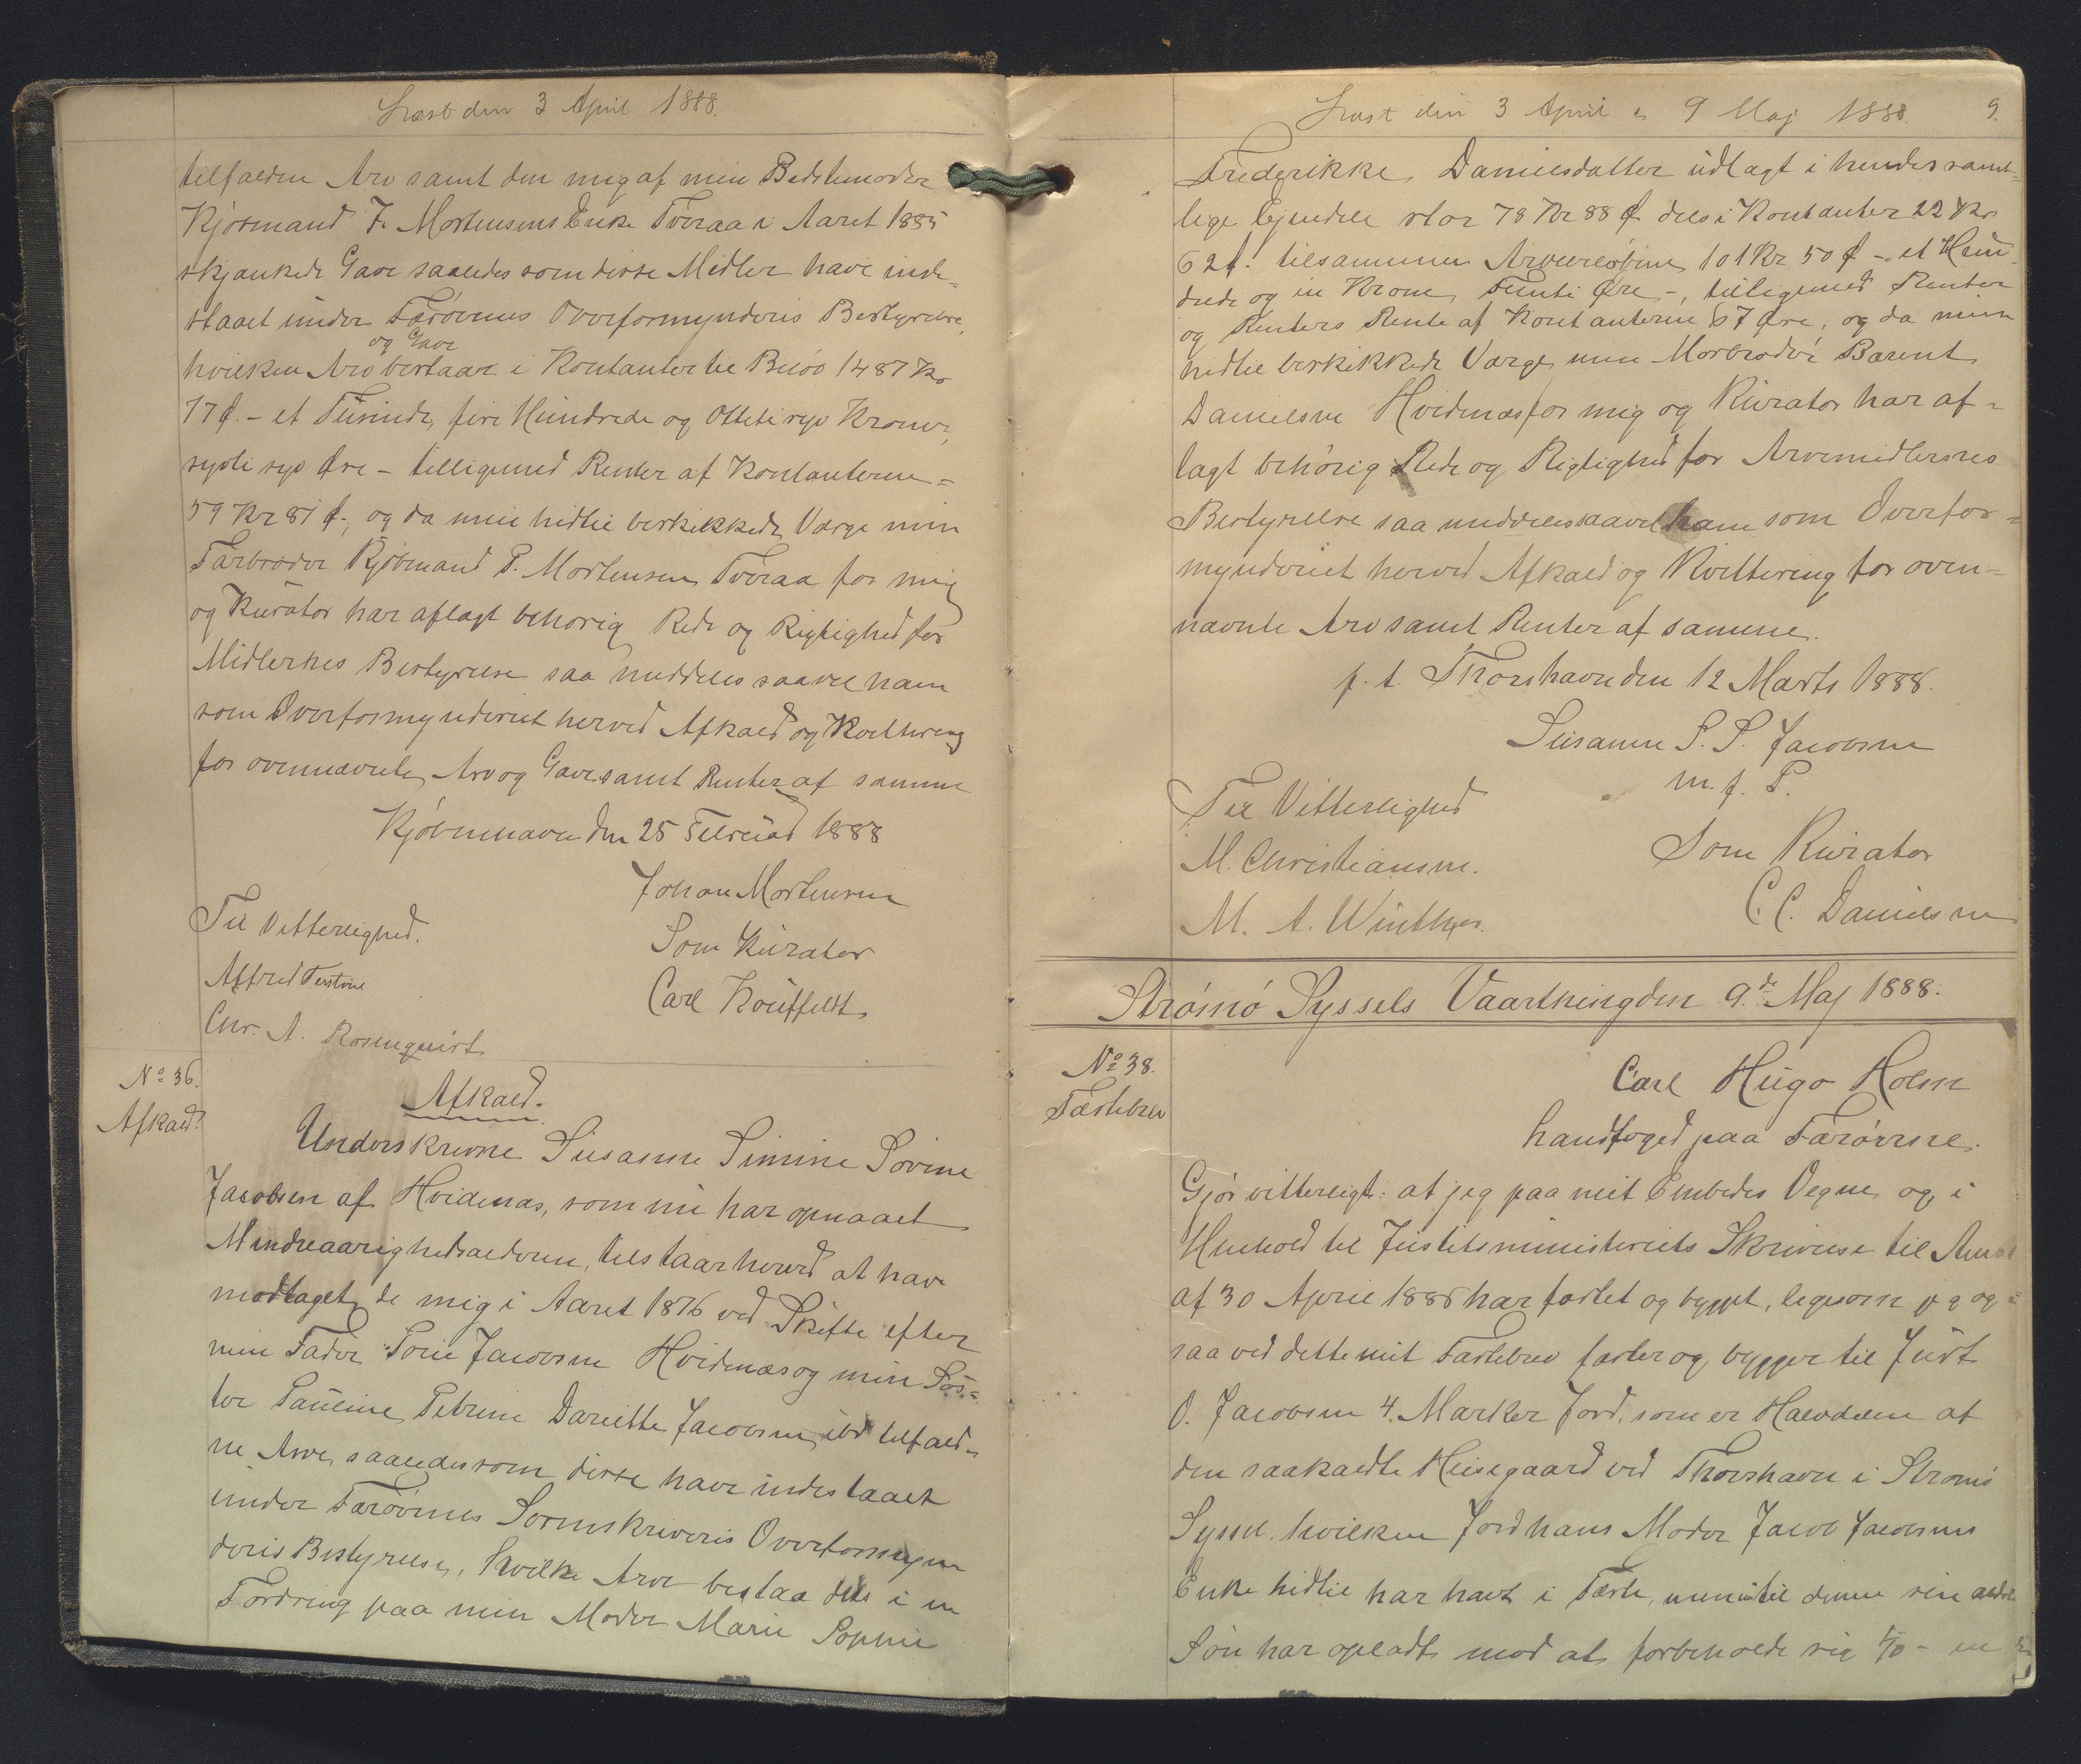 Læst den 3 April 1888.
tilfalden Arv samt den mig af min Bedstemoder
Kjøbmand J. Mortensens Enke Tveraa i Aaret 1885
skjænkede Gave saaledes som disse Midler have inde-
staaet under Færøernes Overformynderis Bestyrelse,
og Gave
hvilken Arv bestaar i Kontanter til Beløb 1487 Kr
77 Ø. - et Tusinde, fire Hundrede og Ottetisyv Kroner,
syvti syv Øre - tilligemed Renter af Kontanterne =
59 Kr 81 Ø-, og da min hidtil beskikkede Værge min
Farbroder Kjøbmand P. Mortensen Tveraa for mig
og Kurator har aflagt behørig Rede og Rigtighed for
Midlernes Bestyrelse saa meddeles saavel ham
som Overformynderiet herved Afkald og Kvittering
for ovennævnte Arv og Gave samt Renter af samme
Kjøbenhavn den 25 Februar 1888
Johan Mortensen
Til Vitterlighed.
Som Kurator
Alfred
Carl
Chr. A. Rosenquist
No 36.
Afkald.
Afkald.
Underskrevne Susanne Simine Sovine
Jacobsen af Hvidenæs, som nu har opnaaet
Mindreaarighedsalderen, tilstaar herved at have
modtaget de mig i Aaret 1876 ved Skifte efter
min Fader Poul Jacobsen Hvidenæs og min Søs-
ter Pauline Petrine Dariette Jacobsen ibd tilfald-
ne Arve, saaledes som disse have indestaaet
under Færøernes Sorenskriveris Overformyn
deris Bestyrelse, hvilke Arve bestaa dels i en
Fordring paa min Moder Marie Sophie
Læst den 3 April og 9 Maj 1888. 9.
Frederikke Danielsdatter udlagt i hendes samt-
lige Ejendele stor 78 Kr 88 Ø dels i Kontanter 22 Kr
62 Ø. tilsammen Arvebeløbene 101 Kr 50 Ø - et Hun-
drede og en Krone, Femti Øre -, tilligemed Renter
og Renters Rente af Kontanterne 67 Øre, og da min
hidtil beskikkede Værge min Morbroder Barent
Danielsen Hvidenæs for mig og Kurator har af-
lagt behørig Rede og Rigtighed for Arvemidlernes
Bestyrelse saa meddeles saavel ham som Overfor-
mynderiet herved Afkald og Kvittering for oven-
nævnte Arv samt Renter af samme.
p. t. Thorshavn den 12 Marts 1888.
Susanne S. S. Jacobsen
m. f. P.
Til Vitterlighed
Som Kurator
M. Christiansen.
C. C. Danielsen
M. A. Winther.
Strømø Syssels Vaarthing den 9de Maj 1888.
No 38.
Fæstebrev
Carl Hugo Holm
Landfoged paa Færøerne.
Gjør vitterligt: at jeg paa mit Embedes Vegne og i
Henhold til Justitsministeriets Skrivelse til Amtet
af 30 April 1886 har fæstet og bygget, ligesom jeg og-
saa ved dette mit Fæstebrev fæster og bygger til Just
O. Jacobsen 4 Marker Jord, som er Halvdelen af
den saakaldte Husegaard ved Thorshavn i Strømø
Syssel. hvilken Jord hans Moder Jacob Jacobsens
Enke hidtil har havt i Fæste, men nu til denne sin ældste
Søn har opladt mod at forbeholde sig 1/10 - en